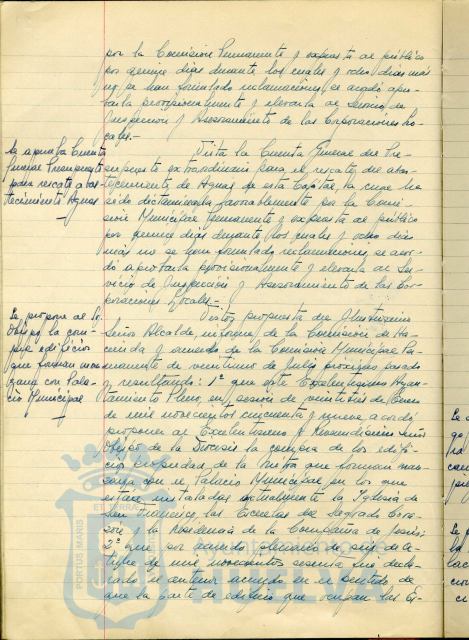 por la Comisión Permanente y expuesta al público
por quince días durante los cuales y ocho días más
no se han formulado reclamaciones, se acordó apro-
barla provisionalmente y elevarla al Servicio de
Inspección y Asesoramiento de las Corporaciones Lo-
cales.-
Se aprueba Cuenta
General Presupuesto
para rescate abas-
tecimiento Aguas
Vista la Cuenta General del Pre-
supuesto extraordinario para el rescate del abas-
tecimiento de Aguas de esta Capital, la cual ha
sido dictaminada favorablemente por la Comi-
sión Municipal Permanente y expuesta al público
por quince días durante los cuales y ocho días
más no se han formulado reclamaciones, se acor-
dó aprobarla provisionalmente y elevarla al Ser-
vicio de Inspección y Asesoramiento de las Cor-
poraciones Locales.-
Se propone al Sr.
Obispo la com-
pra edificios
que forman man-
zana con Pala-
cio Municipal
Vistos propuesta del Ilustrísimo
Señor Alcalde, informe de la Comisión de Ha-
cienda y acuerdo de la Comisión Municipal Per-
manente de veintiuno de Julio próximo pasado
y resultando: 1º que este Excelentísimo Ayun-
tamiento Pleno, en sesión de veintitrés de Enero
de mil novecientos cincuenta y nueve acordó
proponer al Excelentísimo y Reverendísimo Señor
Obispo de la Diócesis la compra de los edifi-
cios propiedad de la Mitra que forman man-
zana con el Palacio Municipal en los que
están instaladas actualmente la Iglesia de
San Francisco, las Escuelas del Sagrado Cora-
zón y la Residencia de la Compañía de Jesús;
2º que por acuerdo plenario de seis de
de mil novecientos sesenta fue
anterior acuerdo en el sentido de
que la parte de edificio que ocupan las Es-
PORTUS MARIS
ET TERRAE